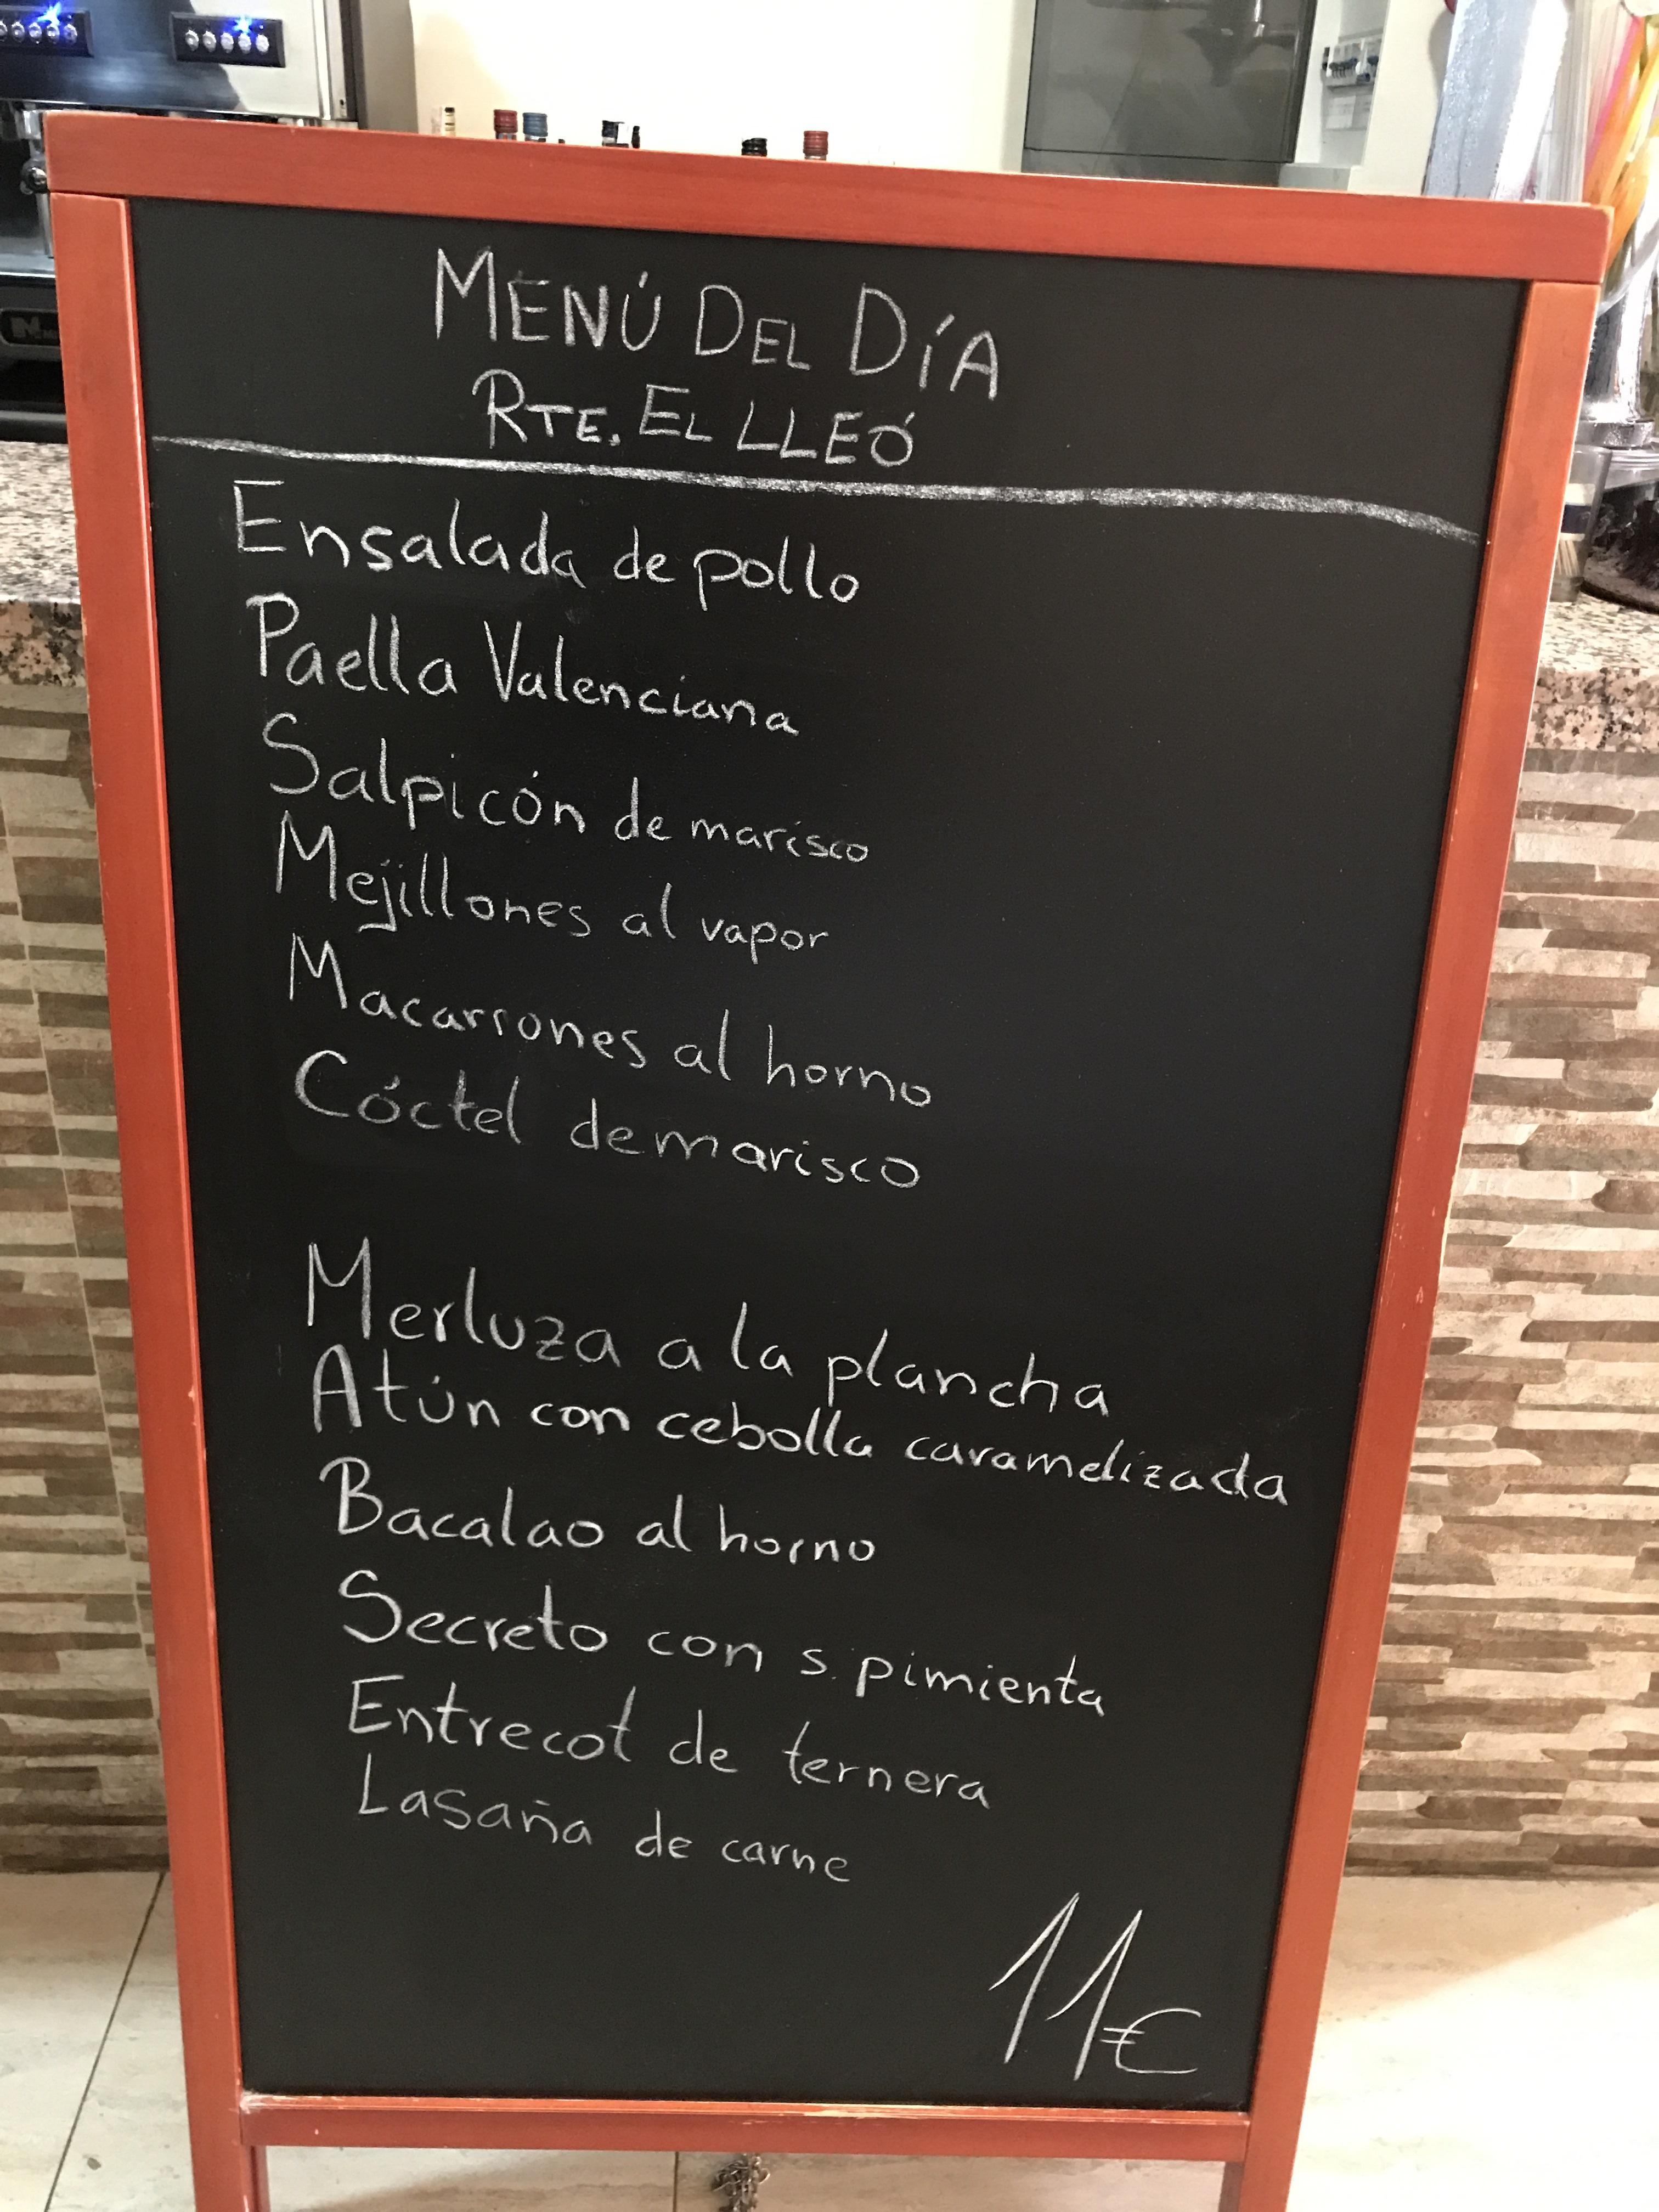 MENÚ DEL DÍA
RTE. EL LLEÓ
Ensalada de pollo
Paella Valenciana
Salpicón de marisco
Mejillones al vapor
Macarrones al horno
Cóctel de marisco
Merluza a la plancha
Atún con cebolla caramelizada
Bacalao al horno
Secreto con s. pimienta
Entrecot de ternera
Lasaña de carne
11€